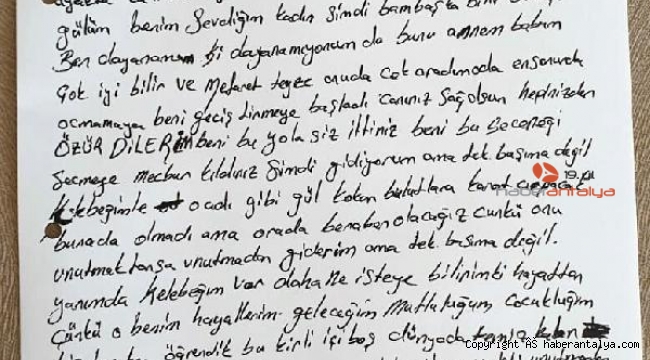 gülüm benim Sevdiğim kadın Şimdi bambaşka
Ben dayanamam ki dayanamıyorumda bunu annem babam
Çok iyi bilir ve teyze onuda çok aradımada ensonunda
beni geçiştirmeye başladı canınız Sağolsun hepinizden
ÖZÜR DİLERİM beni bu yola siz ittiniz beni bu Seçeneği
Seçmeye mecbur kıldınız Şimdi gidiyorum ama tek başıma değil
19.YIL
haberantalya
Kelebeğimle o adı gibi gül kokan bulutlara kanat
burada olmadı ama orada beraber olacağız çünkü onu
unutmaktansa unutmadan giderim ama tek başıma değil.
yanımda Kelebeğim var daha ne isteye bilirimki hayattan
Çünkü o benim hayallerim geleceğim mutluluğum çocukluğum
öğrendik bu kirli içi boş dünyada
Copyright AS haberantalya.com